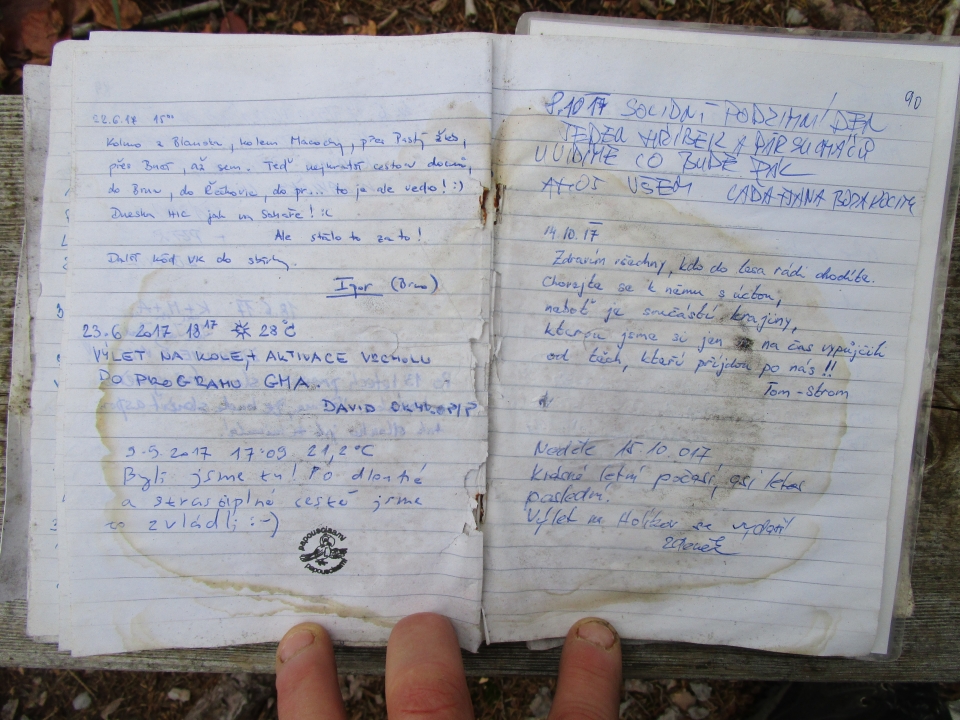 22.6.17 15⁰⁰
Kolmo z Blanska, kolem Macochy, přes Pustý Žleb,
přes Brno, až sem. Teď nejkratší cestou domů,
do Brna, do Řečkovic, do pr... to je ale vedro! :)
Dneska hic jak na Sahaře! :(
Ale stálo to za to!
Další kód VK do sbírky.
Igor (Brno)
23.6 2017 18¹⁷ 28°C
VÝLET NA KOLE, + AKTIVACE VRCHOLU
DO PROGRAMU GMA.
DAVID OK4DOP/P
9.5.2017 17:09 21,2°C
Byli jsme tu! Po dlouhé
a strastiplné cestě jsme
to zvládli :-)
90
8.10 17 SOLIDNÍ PODZIMNÍ DEN
JEDEN HŘÍBEK A PÁR SUCHÁČŮ
UVIDÍME CO BUDE PAK
AHOJ VŠEM
14.10.17
Zdravím všechny, kdo do lesa rádi chodíte.
Chovejte se k němu s úctou,
neboť je součástí krajiny,
kterou jsme si jen na čas vypůjčili
od těch, kteří přijdou po nás!!
Tom-strom
Neděle 15.10.017
Krásné letní počasí, asi letos
poslední.
Výlet na Holíkov se vydařil